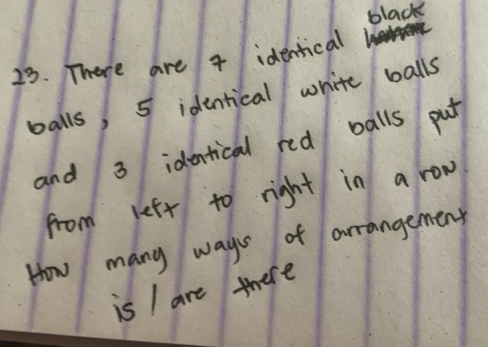 23. There are 7 identical black
balls, 5 identical white balls
and 3 identical red balls put
from left to right in a row.
How many ways of arrangement
is / are there